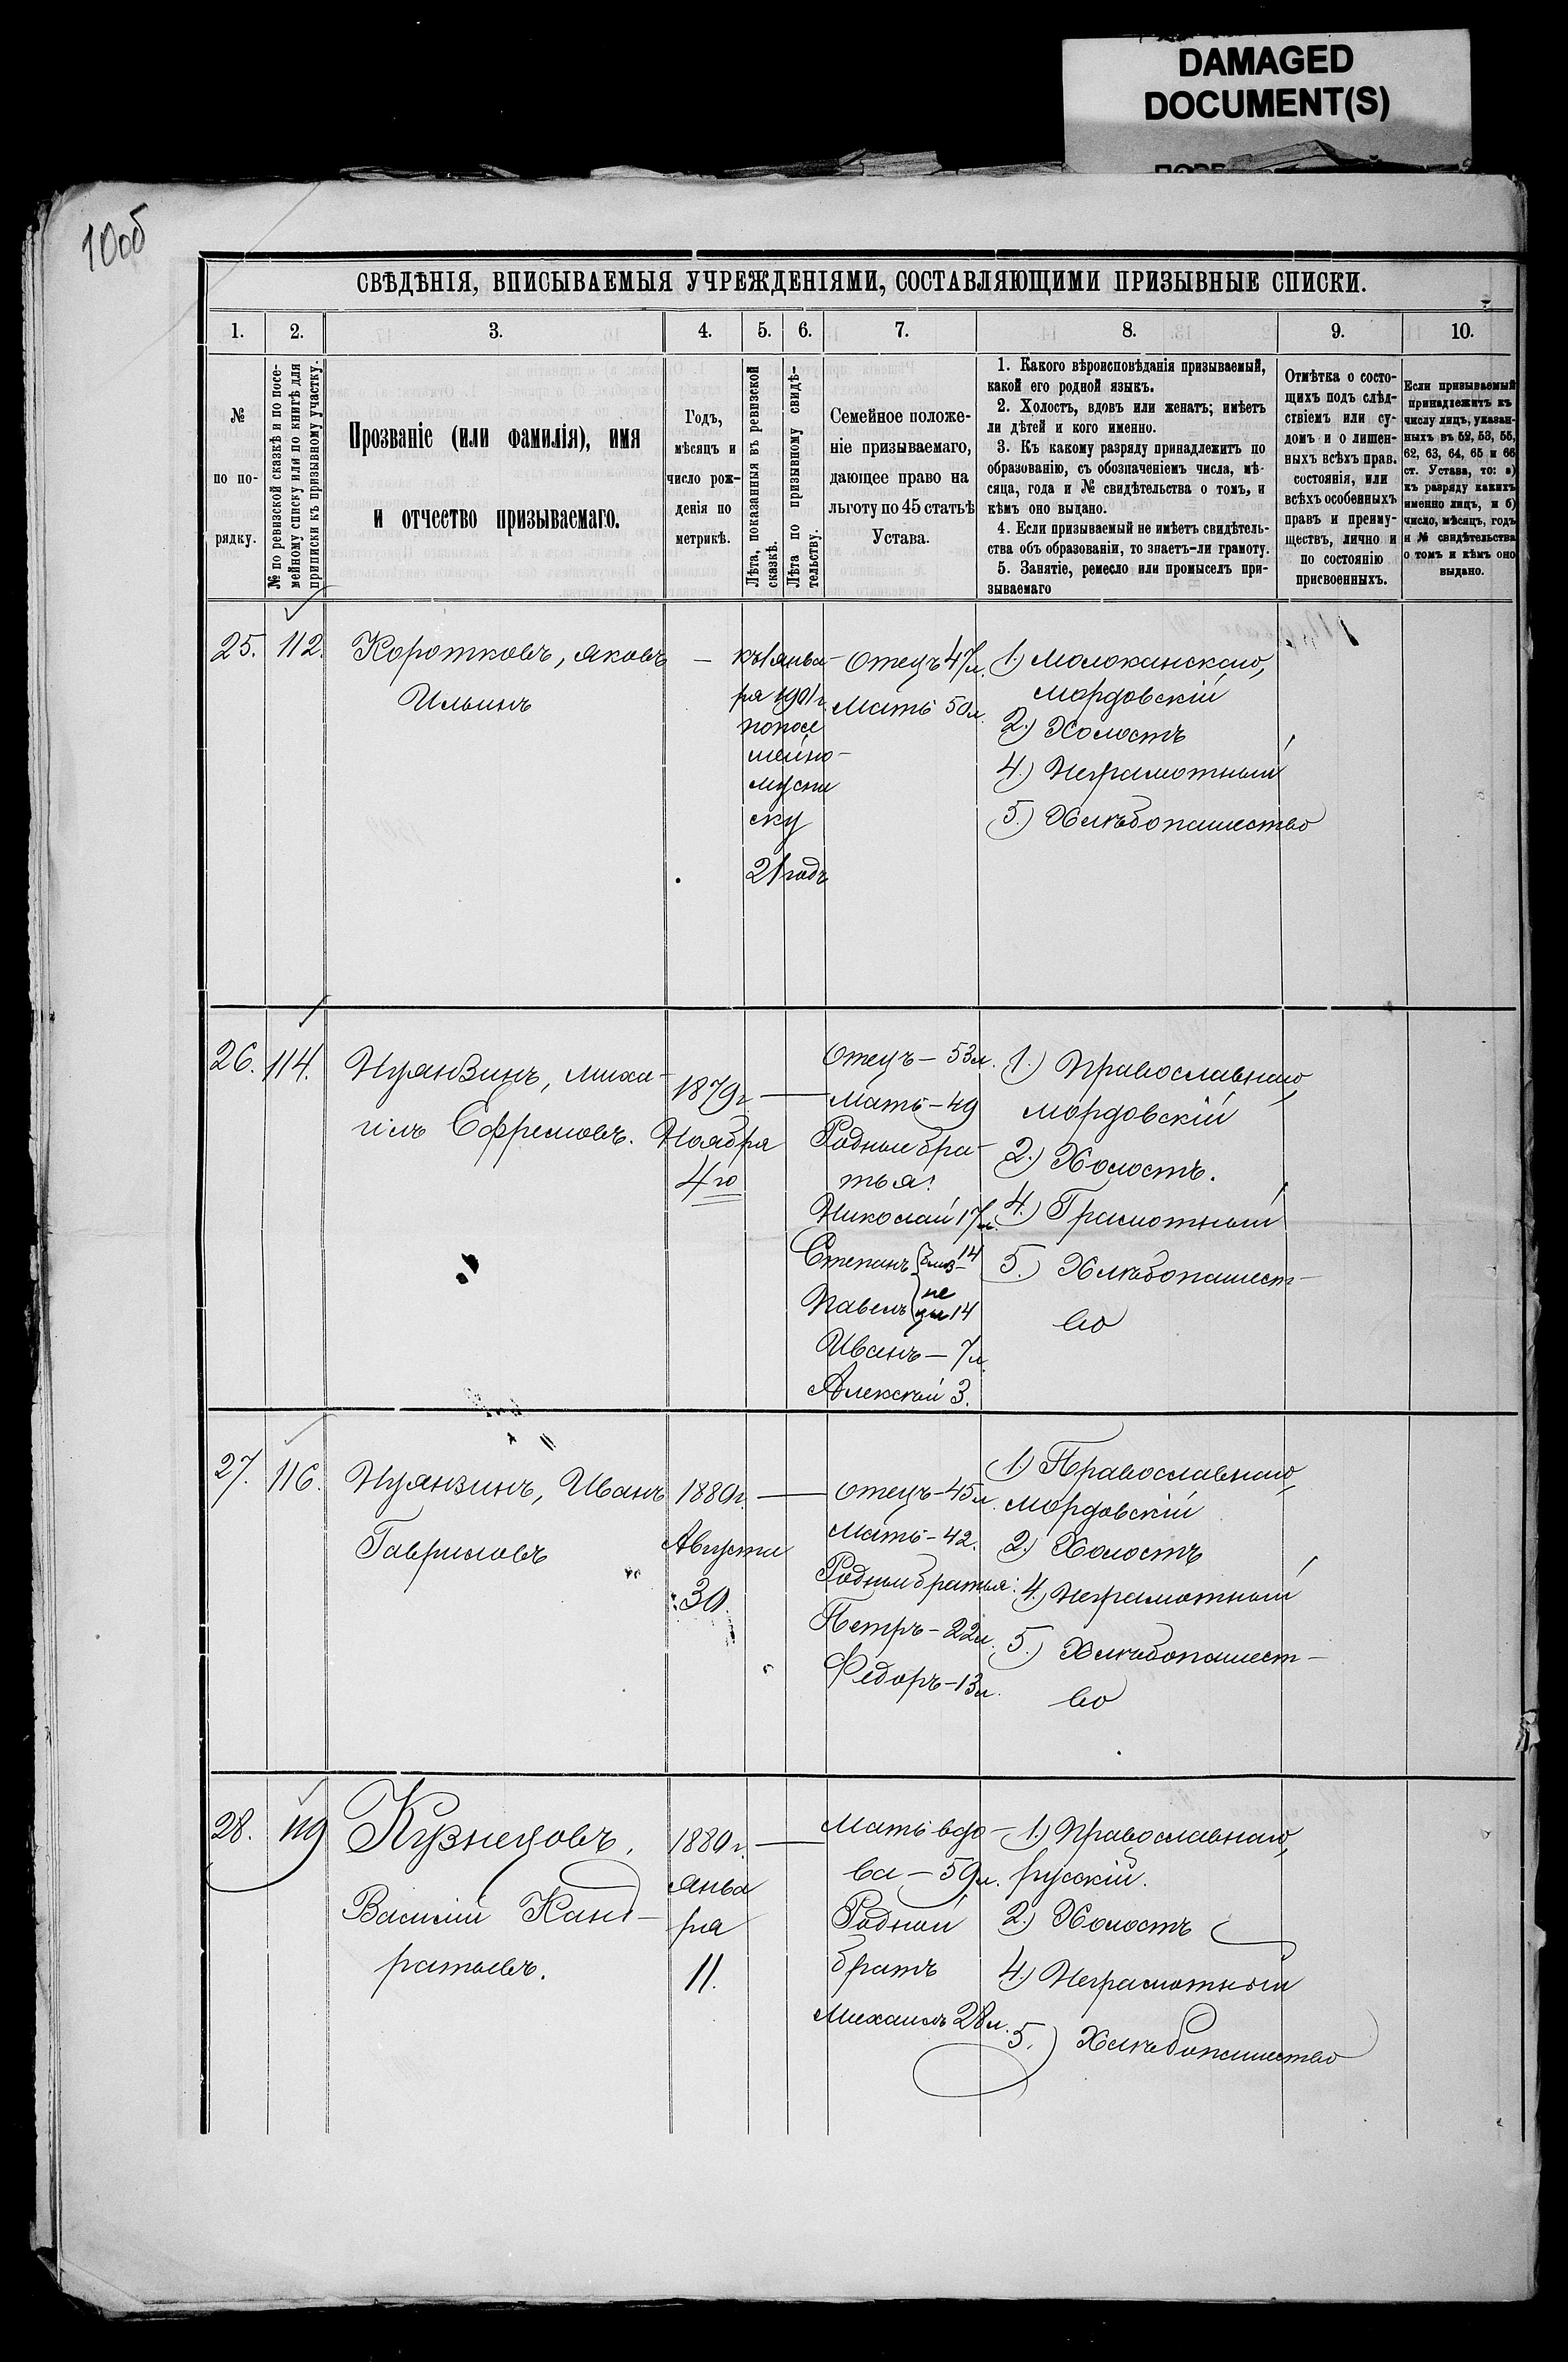 DAMAGED
DOCUMENT(S)
10об
СВѢДѢНІЯ, ВПИСЫВАЕМЫЯ УЧРЕЖДЕНІЯМИ, СОСТАВЛЯЮЩИМИ ПРИЗЫВНЫЕ СПИСКИ.
1. 2. 3. 4. 5. 6. 7. 8. 9. 10.
№
по по-
рядку.
№ по ревизской сказкѣ и по посе-
мейному списку или по книгѣ для
приписки къ призывному участку.
Прозваніе (или фамилія), имя
и отчество призываемаго.
Годъ,
мѣсяцъ и
число рож-
денія по
метрикѣ.
Лѣта, показанныя въ ревизской
сказкѣ.
Лѣта по призывному свидѣ-
тельству.
Семейное положе-
ніе призываемаго,
дающее право на
льготу по 45 статьѣ
Устава.
1. Какого вѣроисповѣданія призываемый,
какой его родной языкъ.
2. Холостъ, вдовъ или женатъ; имѣетъ
ли дѣтей и кого именно.
3. Къ какому разряду принадлежитъ по
образованію, съ обозначеніемъ числа, мѣ-
сяца, года и № свидѣтельства о томъ, и
кѣмъ оно выдано.
4. Если призываемый не имѣетъ свидѣтель-
ства объ образованіи, то знаетъ-ли грамоту.
5. Занятіе, ремесло или промыселъ при-
зываемаго
Отмѣтка о состо-
щихъ подъ слѣд-
ствіемъ или су-
домъ и о лишен-
ныхъ всѣхъ прав.
состоянія, или
всѣхъ особенныхъ
правъ и преиму-
ществъ, лично и
по состоянію
присвоенныхъ.
Если призываемый
принадлежитъ къ
числу лицъ, указан-
ныхъ въ 52, 53, 55,
62, 63, 64, 65 и 66
ст. Устава, то: а)
къ разряду какихъ
именно лицъ, и б)
число, мѣсяцъ, годъ
и № свидѣтельства
о томъ и кѣмъ оно
выдано.
25. 112. Коротковъ, Яковъ
Ильинъ
—
къ 1 янва-
ря 1901 г.
по посе
мейно-
му спи
ску
21 годъ
Отецъ 47 л.
Мать 50 л.
1.) Молоканскаго,
мордовскій
2.) Холостъ
4.) Неграмотный
5.) Хлѣбопашество
26. 114. Нуянзинъ, Миха-
илъ Ефремовъ.
1879 г. —
Ноября
4го
Отецъ — 53 л.
Мать — 49
Родные бра-
тья:
Николай 17 л.
Степанъ близ- 14
Павелъ не цы 14
Иванъ — 7 л.
Алексѣй 3.
1.) Православнаго,
мордовскій
2.) Холостъ.
4.) Грамотный
5.) Хлѣбопашест-
во
27. 116. Нуянзинъ, Иванъ
Гавриловъ
1880 г. —
Августа
30.
Отецъ — 45 л.
Мать — 42.
Родные братья:
Петръ — 22 л.
Федоръ — 13 л.
1.) Православнаго,
мордовскій
2.) Холостъ
4.) Неграмотный
5.) Хлѣбопашест-
во
28. 119 Кузнецовъ,
Василій Канд-
ратьевъ.
1880 г. —
Янва
ря
11.
Мать вдо-
ва — 59 л.
Родной
братъ
Михаилъ 28 л.
1.) Православнаго,
русскій.
2.) Холостъ
4.) Неграмотный
5.) Хлѣбопашество